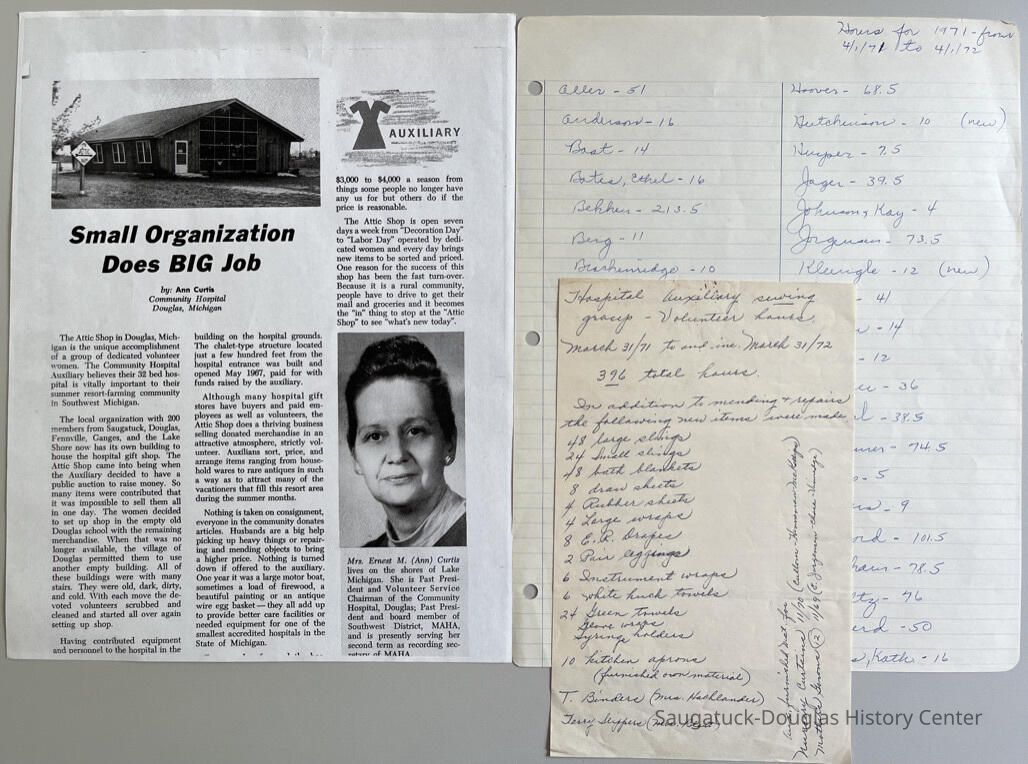 Small Organization
Does BIG Job
by: Ann Curtis
Community Hospital
Douglas, Michigan
The Attic Shop in Douglas, Mich-
igan is the unique accomplishment
of a group of dedicated volunteer
women. The Community Hospital
Auxiliary believes their 32 bed hos-
pital is vitally important to their
summer resort-farming community
in Southwest Michigan.
The local organization with 200
members from Saugatuck, Douglas,
Fennville, Ganges, and the Lake
Shore now has its own building to
house the hospital gift shop. The
Attic Shop came into being when
the Auxiliary decided to have a
public auction to raise money. So
many items were contributed that
it was impossible to sell them all
in one day. The women decided
to set up shop in the empty old
Douglas school with the remaining
merchandise. When that was no
longer available, the village of
Douglas permitted them to use
another empty building. All of
these buildings were with many
stairs. They were old, dark, dirty,
and cold. With each move the de-
voted volunteers scrubbed and
cleaned and started all over again
setting up shop.
Having contributed equipment
and personnel to the hospital in the
building on the hospital grounds.
The chalet-type structure located
just a few hundred feet from the
hospital entrance was built and
opened May 1967, paid for with
funds raised by the auxiliary.
Although many hospital gift
stores have buyers and paid em-
ployees as well as volunteers, the
Attic Shop does a thriving business
selling donated merchandise in an
attractive atmosphere, strictly vol-
unteer. Auxilians sort, price, and
arrange items ranging from house-
hold wares to rare antiques in such
a way as to attract many of the
vacationers that fill this resort area
during the summer months.
Nothing is taken on consignment,
everyone in the community donates
articles. Husbands are a big help
picking up heavy things or repair-
ing and mending objects to bring
a higher price. Nothing is turned
down if offered to the auxiliary.
One year it was a large motor boat,
sometimes a load of firewood, a
beautiful painting or an antique
wire egg basket — they all add up
to provide better care facilities or
needed equipment for one of the
smallest accredited hospitals in the
State of Michigan.
AUXILIARY
$3,000 to $4,000 a season from
things some people no longer have
any us for but others do if the
price is reasonable.
The Attic Shop is open seven
days a week from "Decoration Day"
to "Labor Day" operated by dedi-
cated women and every day brings
new items to be sorted and priced.
One reason for the success of this
shop has been the fast turn-over.
Because it is a rural community,
people have to drive to get their
mail and groceries and it becomes
the "in" thing to stop at the "Attic
Shop" to see "what's new today".
Mrs. Ernest M. (Ann) Curtis
lives on the shores of Lake
Michigan. She is Past Presi-
dent and Volunteer Service
Chairman of the Community
Hospital, Douglas; Past Presi-
dent and board member of
Southwest District, MAHA,
and is presently serving her
second term as recording sec-
retary of MAHA.
Hours for 1971 - from
4/1/71 to 4/1/72
Aller - 51
Anderson - 16
Bast - 14
Bates, Ethel - 16
Bekken - 213.5
Berg - 11
Brackenridge - 10
Hoover - 68.5
Hutchinson - 10 (new)
7.5
Jager - 39.5
Johnson, Kay - 4
Jorgensen - 73.5
12 (new)
- 41
- 14
- 12
- 36
- 38.5
- 74.5
- 5
- 9
- 101.5
- 78.5
- 76
- 50
Kath - 16
Hospital Auxiliary sewing
group - Volunteer hours
March 31/71 to and inc. March 31/72
396 total hours.
In addition to mending & repairs
the following new items were made
48 large slings
24 Small slings
48 bath blankets
8 draw sheets
4 Rubber sheets
4 Large wraps
8 E.R. Drapes
2 Pair leggings
6 Instrument wraps
6 white huck towels
24 Green towels
Glove wraps
Syringe holders
10 Kitchen aprons
(furnished own material)
T. Binders (Mrs. Hachlander)
Terry Slippers
Nursery Curtains 11/70
Saugatuck-Douglas History Center